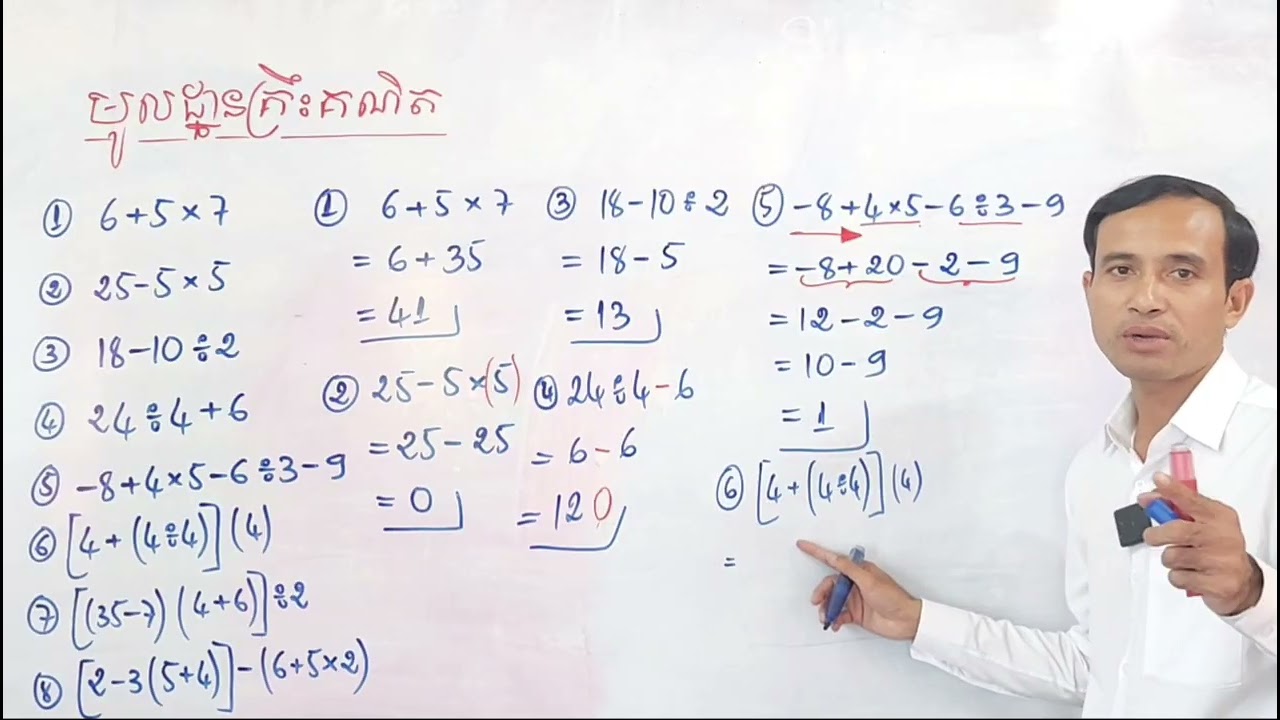 មូលដ្ឋានគ្រឹះគណិត
① 6+5×7
② 25-5×5
③ 18-10÷2
④ 24÷4+6
⑤ -8+4×5-6÷3-9
⑥ [4+(4÷4)](4)
⑦ [(35-7)(4+6)]÷2
⑧ [2-3(5+4)]-(6+5×2)
① 6+5×7
= 6+35
= 41
② 25-5×(5)
= 25-25
= 0
③ 18-10÷2
= 18-5
= 13
④ 24÷4-6
= 6-6
= 12 0
⑤ -8+4×5-6÷3-9
= -8+20-2-9
= 12-2-9
= 10-9
= 1
⑥ [4+(4÷4)](4)
=